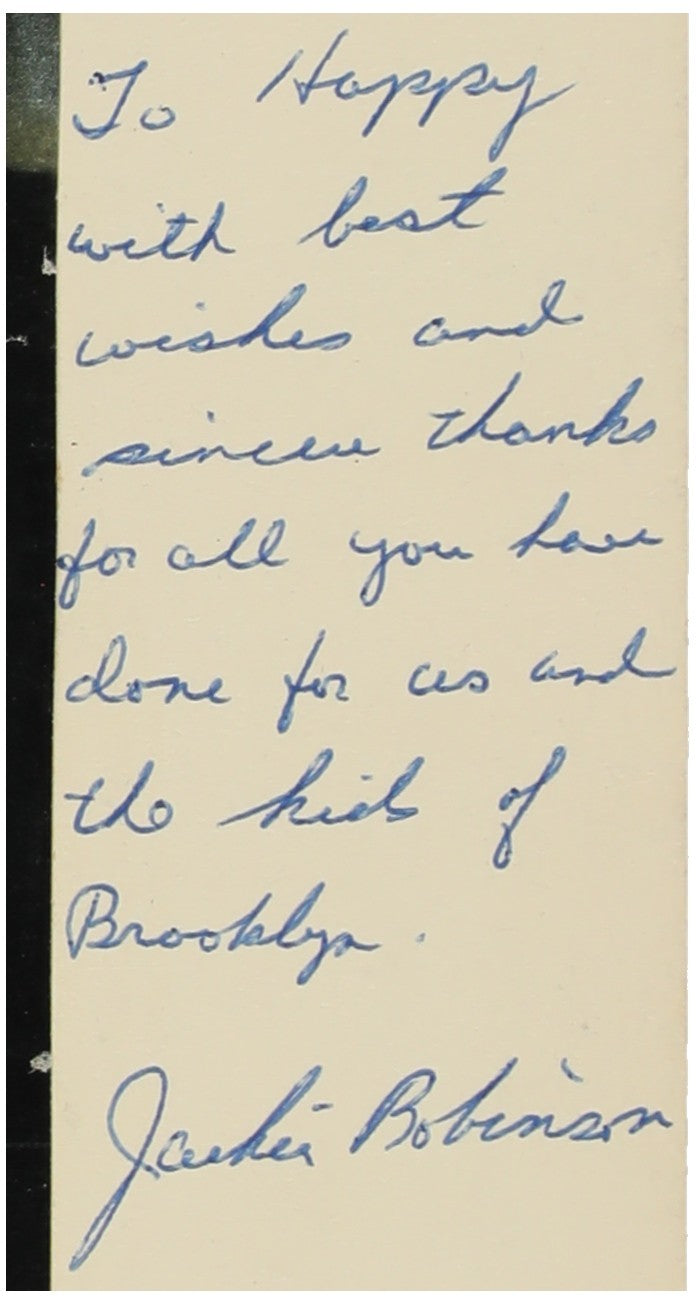 To Happy
with best
wishes and
sincere thanks
for all you have
done for us and
the kids of
Brooklyn.
Jackie Robinson